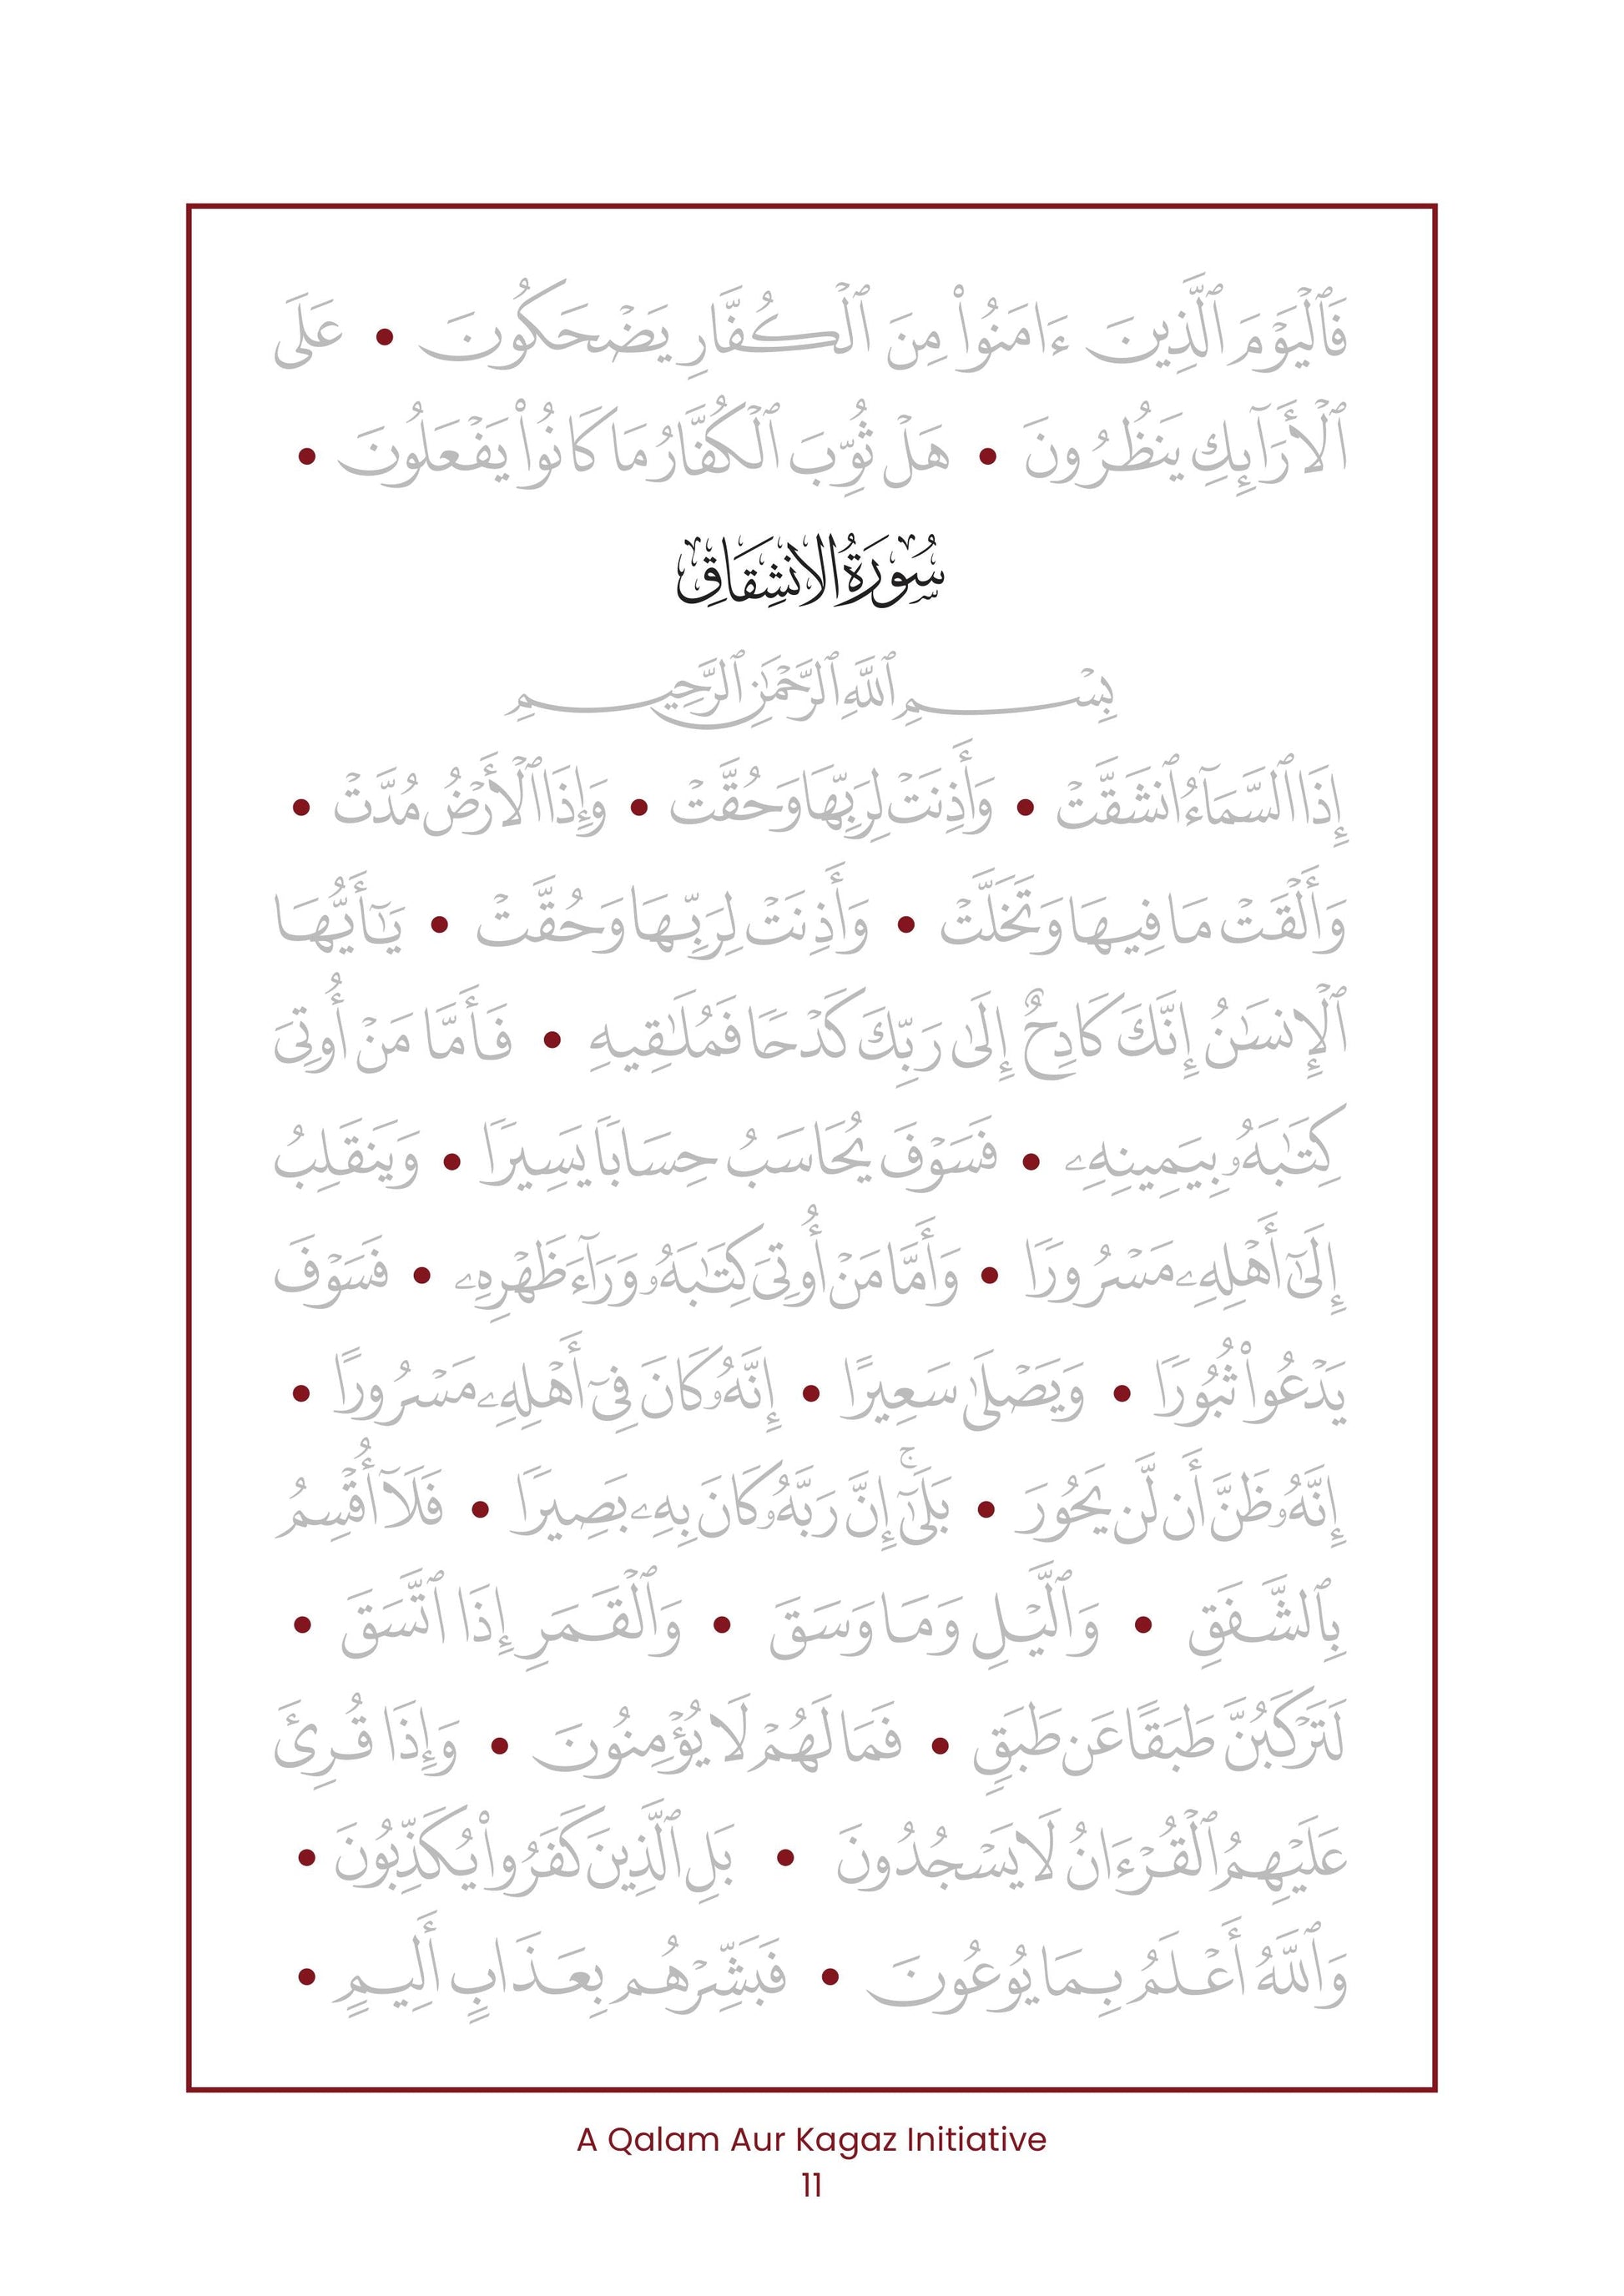 فَٱلْيَوْمَ ٱلَّذِينَ ءَامَنُوا۟ مِنَ ٱلْكُفَّارِ يَضْحَكُونَ • عَلَى
ٱلْأَرَآئِكِ يَنظُرُونَ • هَلْ ثُوِّبَ ٱلْكُفَّارُ مَا كَانُوا۟ يَفْعَلُونَ •
سُورَةُ الانشِقَاقِ
بِسْمِ ٱللَّهِ ٱلرَّحْمَٰنِ ٱلرَّحِيمِ
إِذَا ٱلسَّمَآءُ ٱنشَقَّتْ • وَأَذِنَتْ لِرَبِّهَا وَحُقَّتْ • وَإِذَا ٱلْأَرْضُ مُدَّتْ •
وَأَلْقَتْ مَا فِيهَا وَتَخَلَّتْ • وَأَذِنَتْ لِرَبِّهَا وَحُقَّتْ • يَٰٓأَيُّهَا
ٱلْإِنسَٰنُ إِنَّكَ كَادِحٌ إِلَىٰ رَبِّكَ كَدْحًا فَمُلَٰقِيهِ • فَأَمَّا مَنْ أُوتِىَ
كِتَٰبَهُۥ بِيَمِينِهِۦ • فَسَوْفَ يُحَاسَبُ حِسَابًا يَسِيرًا • وَيَنقَلِبُ
إِلَىٰٓ أَهْلِهِۦ مَسْرُورًا • وَأَمَّا مَنْ أُوتِىَ كِتَٰبَهُۥ وَرَآءَ ظَهْرِهِۦ • فَسَوْفَ
يَدْعُوا۟ ثُبُورًا • وَيَصْلَىٰ سَعِيرًا • إِنَّهُۥ كَانَ فِىٓ أَهْلِهِۦ مَسْرُورًا •
إِنَّهُۥ ظَنَّ أَن لَّن يَحُورَ • بَلَىٰٓۚ إِنَّ رَبَّهُۥ كَانَ بِهِۦ بَصِيرًا • فَلَآ أُقْسِمُ
بِٱلشَّفَقِ • وَٱلَّيْلِ وَمَا وَسَقَ • وَٱلْقَمَرِ إِذَا ٱتَّسَقَ •
لَتَرْكَبُنَّ طَبَقًا عَن طَبَقٍ • فَمَا لَهُمْ لَا يُؤْمِنُونَ • وَإِذَا قُرِئَ
عَلَيْهِمُ ٱلْقُرْءَانُ لَا يَسْجُدُونَ • بَلِ ٱلَّذِينَ كَفَرُوا۟ يُكَذِّبُونَ •
وَٱللَّهُ أَعْلَمُ بِمَا يُوعُونَ • فَبَشِّرْهُم بِعَذَابٍ أَلِيمٍ •
A Qalam Aur Kagaz Initiative
11